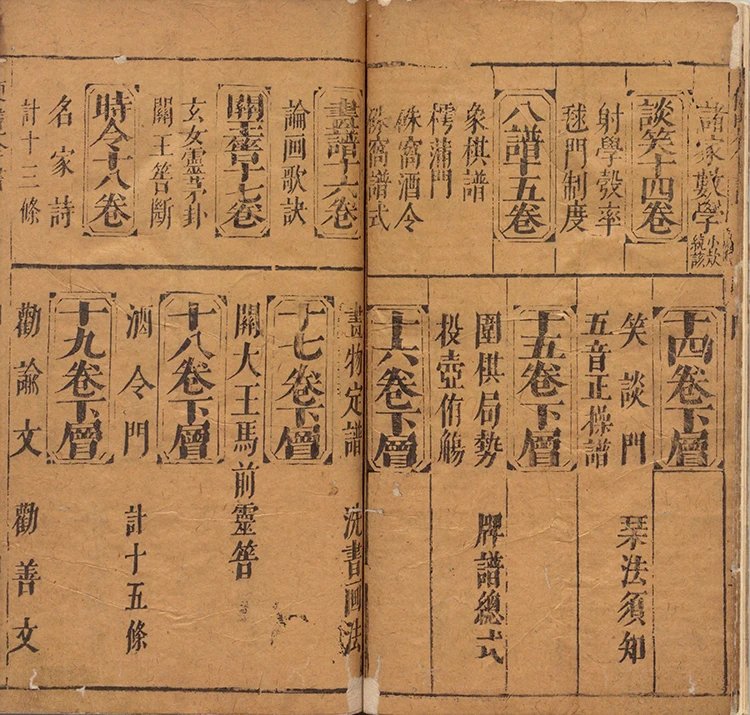 諸家數學
談笑十四卷
射學彀率
毬門制度
八譜十五卷
象棋譜
樗蒲門
窩酒令
窩譜式
十四卷下層
笑談門 琹法須知
五音正操譜
十五卷下層
圍棋局勢 牌譜總式
投壺侑觴
十六卷下層
畫譜十六卷
論画歌訣
關王筶十七卷
玄女靈卦
關王筶斷
時令十八卷
名家詩
計十三條
畫物定譜 洗書画法
十七卷下層
關大王馬前靈筶
十八卷下層
酒令門 計十五條
十九卷下層
勸諭文 勸善文